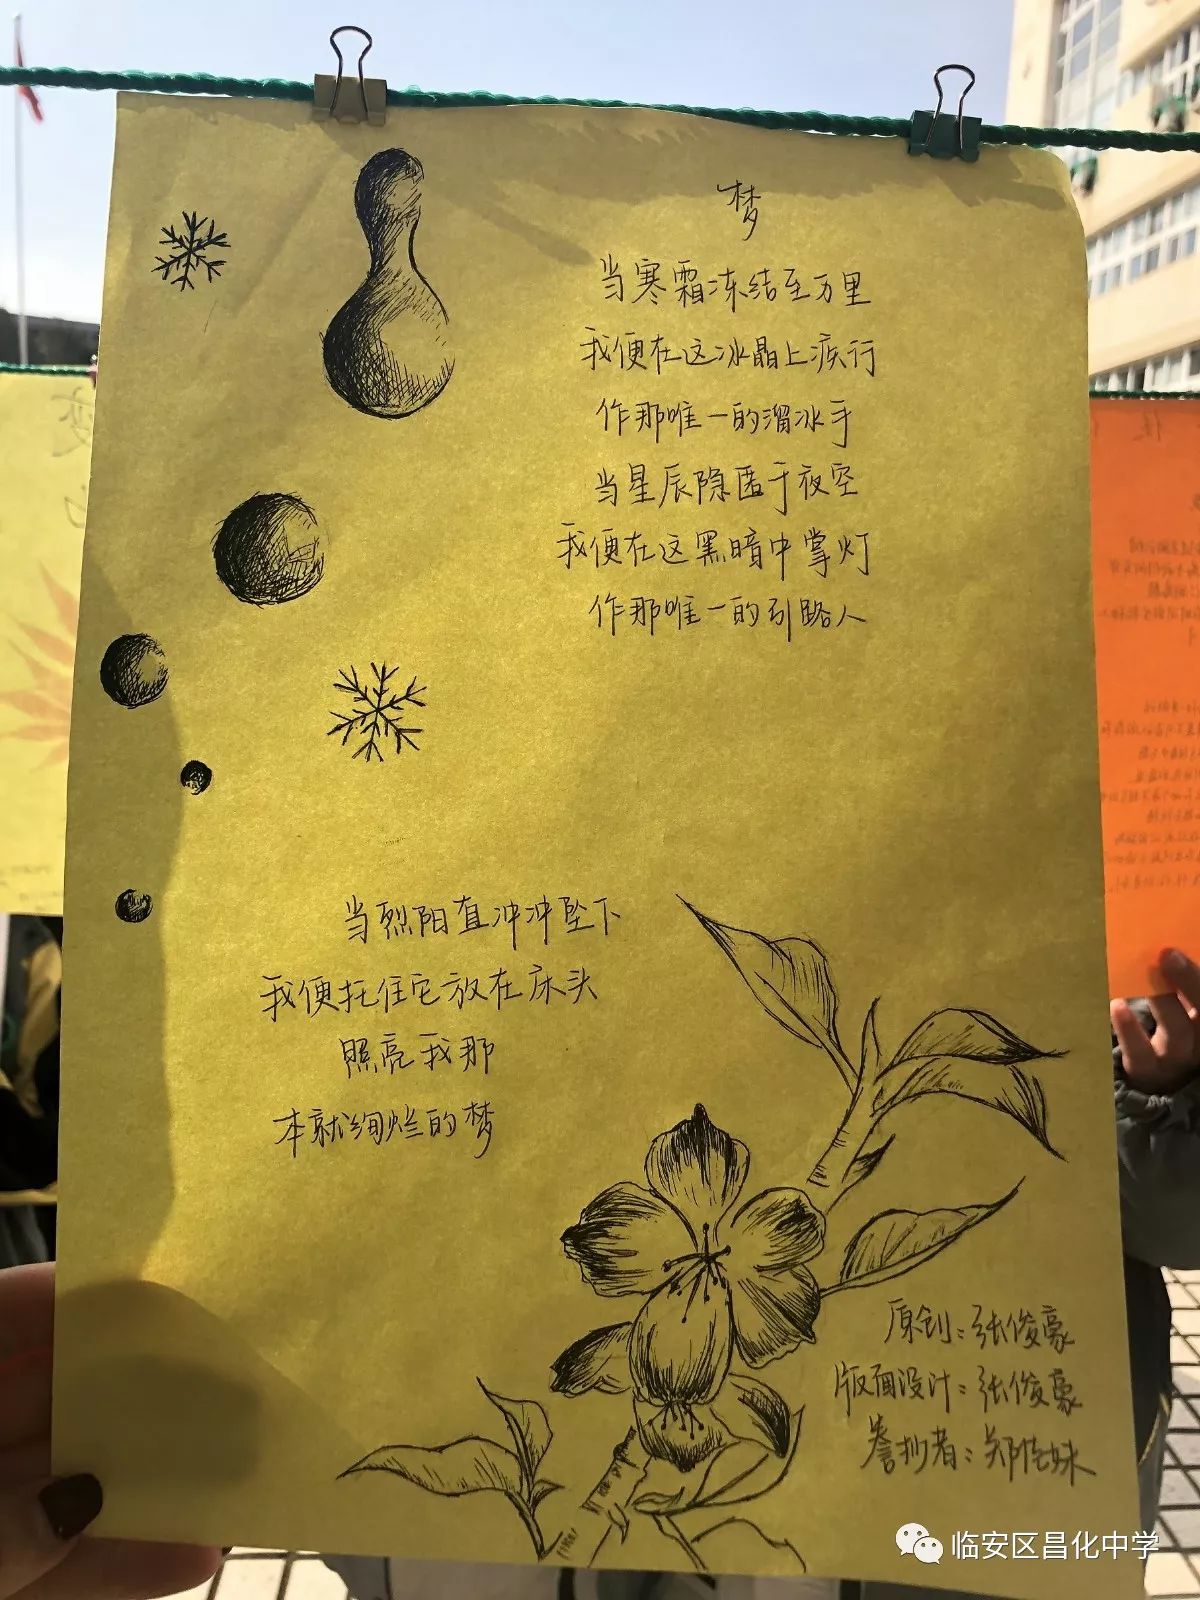 梦
当寒霜冻结至万里
我便在这冰晶上疾行
作那唯一的溜冰手
当星辰隐匿于夜空
我便在这黑暗中掌灯
作那唯一的引路人
当烈阳直冲冲坠下
我便托住它放在床头
照亮我那
本就绚烂的梦
原创：张俊豪
版面设计：张俊豪
誊抄者：郑佳妹
临安区昌化中学